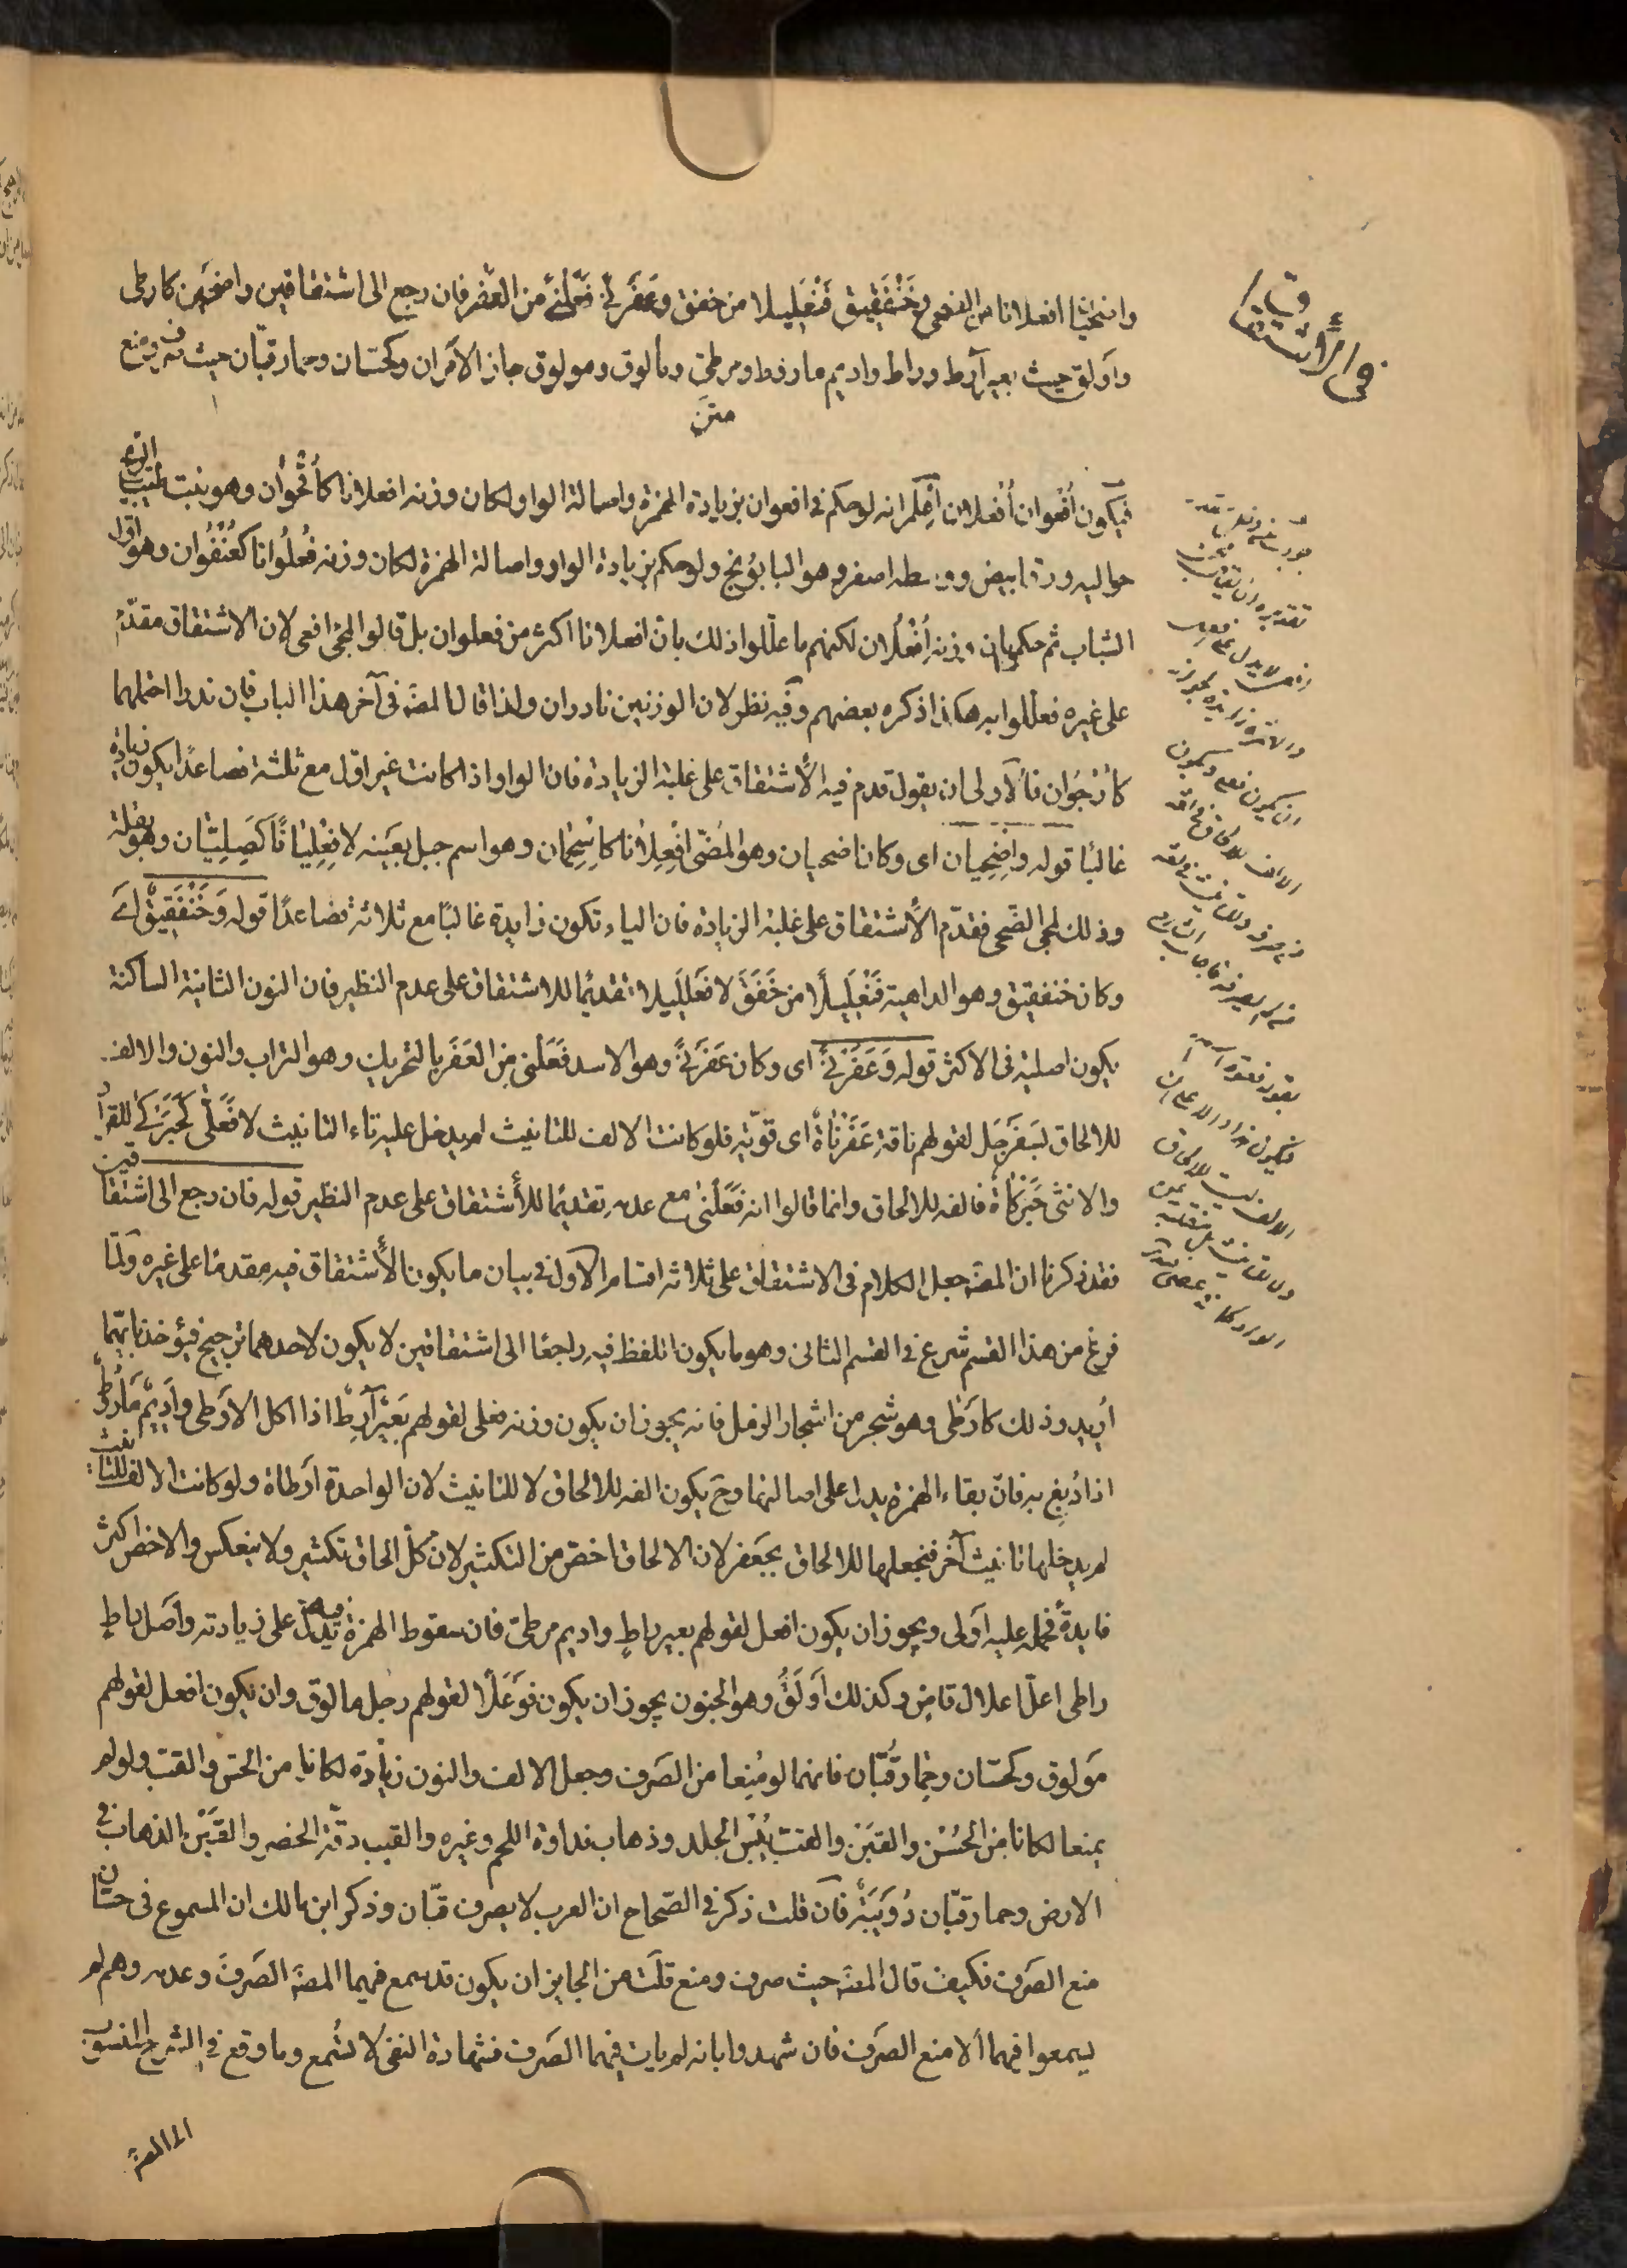 واضحيانا افعلانا من الضحى وخَنْفَقِيق فَنْعَلِيلا من خفق وعَفَرْنى فَعَلْنى من العفر فان رجع الى اشتقاقين واضحين كارطى
واَولق حيث بعير آرط وراط واديم ماروط ومرطىّ ومألوق ومولوق جاز الاَمران وكحسّان وحمار قبّان حيث صرف ومنع
متن
فيكون اُفْعوان اُفْعلان اِعْلم انه لو حكم فى افعوان بزيادة الهمزة واصالة الواو لكان وزنه افعلانا كاُقْحُوان وهو نبت طيّب الريح
حواليه ورق ابيض ووسطه اصفر وهو البابُونج ولو حكم بزيادة الواو واصالة الهمزة لكان وزنه فُعلُوانا كعُنْفُوان وهو اوّل
الشباب ثم حكموا بان وزنه اُفْعُلان لكنهم ما علّلوا ذلك بان افعلانا اكثر من فعلوان بل قالوا لمجئ افعى لان الاشتقاق مقدّم
على غيره فعلّلوا به هكذا ذكره بعضهم وفيه نظر لان الوزنين نادران ولذا قال المصَ فى آخر هذا الباب فان ندرا احتملهما
كاُرْجُوان فالاَولى ان يقول قدم فيه الاشتقاق على غلبة الزيادة فان الواو اذا كانت غير اوّل مع ثلثة فصاعدًا يكون زيادة
غالبًا قوله واِضْحِيان اى وكان اضحيان وهو المُضئ اِفْعِلانا كاِسْحِمان وهو اسم جبل بعَينه لا فِعْلِيَانًا كَصِلِيّان وهو بقلة
وذلك لمجئ الضّحى فقدّم الاشتقاق على غلبة الزيادة فان الياء تكون زايدة غالبًا مع ثلاثة فصاعدًا قوله وَخَنْفَقِيقٌ اَى
وكان خنفقيق وهو الداهية فَنْعَلِيلًا من خَفَقَ لا فَعْلَلِيلا تقديمًا للاشتقاق على عدم النظير فان النون الثانية الساكنة
يكون اصلية فى الاكثر قوله وَعَفَرْنىً اى وكان عَفَرْنىً وهو الاسد فَعَلْنىً من العَفَر بالتحريك وهو التراب والنون والالف
للالحاق بسَفَرْجَل لقولهم ناقة عَفَرْناة اى قويّة فلو كانت الالف للتانيث لم يدخل عليه تاء التانيث لا فَعَلّى كَحَبَرْكى للقراد
والانثى حَبَرْكاة فالفه للالحاق وانما قالوا انه فَعَلْنىً مع عدمه تقديمًا للاشتقاق على عدم النظير قوله فان رجع الى اشتقاقين
فقد ذكرنا ان المصَ جعل الكلام فى الاشتقاق على ثلاثة اقسام الاول فى بيان ما يكون الاشتقاق فيه مقدمًا على غيره ولمّا
فرغ من هذا القسم شرع فى القسم الثانى وهو ما يكون اللفظ فيه راجعًا الى اشتقاقين لا يكون لاحدهما ترجيح فيؤخذ بايّهما
اُريد وذلك كارطى وهو شجر من اشجار الرمل فانه يجوز ان يكون وزنه فعلى لقولهم بعير آرِط اذا اكل الارطى واديم مارُوط
اذا دُبِغ به فانّ بقاء الهمزة يدل على اصالتها وحَ يكون الفه للالحاق لا للتانيث لان الواحدة ارطاة ولو كانت الالف للتانيث
لم يدخلها تانيث آخر فنجعلها للالحاق بجعفر لان الالحاق اخصّ من التكثير لان كلّ الحاق تكثير ولا ينعكس والاخصّ اكثر
فايدةً فحمله عليه اَولى ويجوز ان يكون افعل لقولهم بعير راطٍ واديم مرطىّ فان سقوط الهمزة يدلّ على زيادته واَصل راطٍ
راطى اعلّ اعلال قاضٍ وكذلك اَولَقٌ وهو الجنون يجوز ان يكون فوعَلًا لقولهم رجل مالوق وان يكون افعل لقولهم
مَولوق وكحسّان وحِمار قَبّان فانهما لو مُنِعا من الصّرف وجعل الالف والنون زيادة لكانا من الحسّ والقبّ ولو لم
يمنعا لكانا من الحُسْن والقَبْن والقبّ يُبْس الجلد وذهاب نداوة اللحم وغيره والقبب دقّة الخصر والقَبْن الذهاب فى
الارض وحمار قبّان دُوَيبّة فان قلت ذكر فى الصّحاح ان العرب لا يصرف قبّان وذكر ابن مالك ان المسموع فى حسّان
منع الصّرف فكيف قال المصَ حيث صرف ومنع قلت من الجايز ان يكون قد سمع فيهما المصَ الصّرف وعدمه وهم لم
يسمعوا فيهما الا منع الصرف فان شهدوا بانه لم يات فيهما الصّرف فشهادة النفى لا تُسمع وما وقع فى الشرح المنسوب
الى المصَ